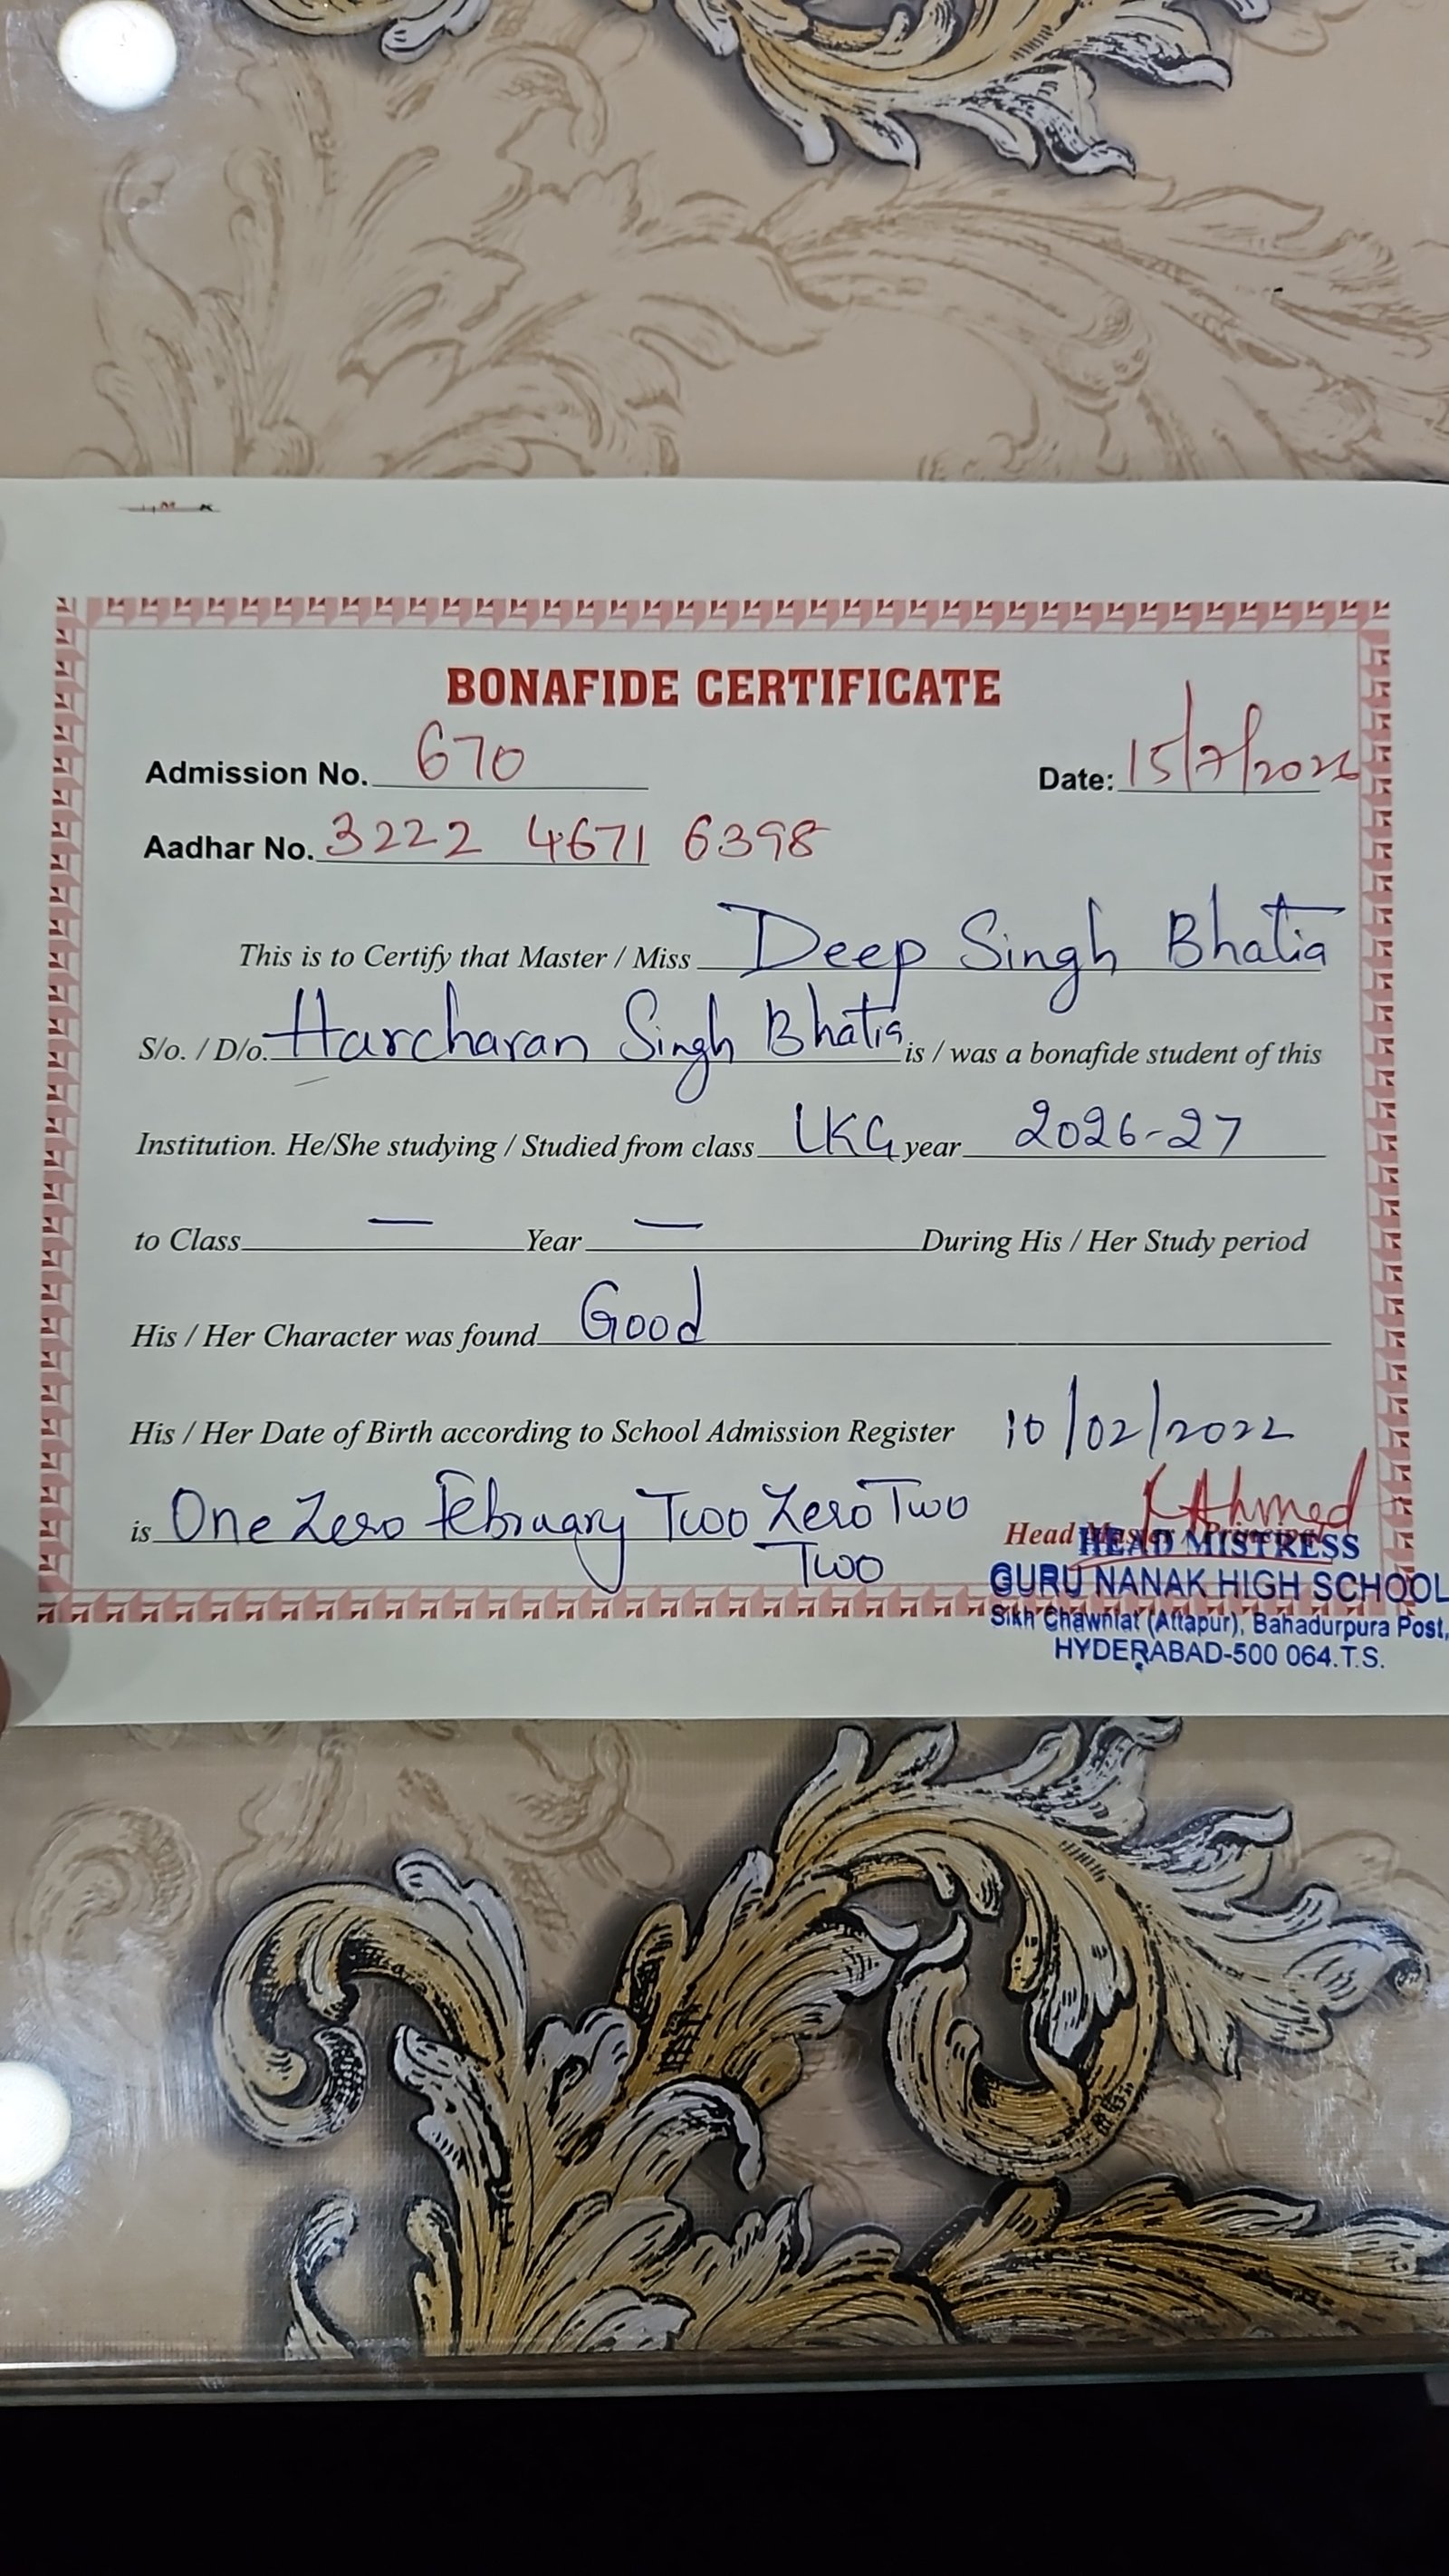 BONAFIDE CERTIFICATE
Admission No. 670 Date: 15/7/2026
Aadhar No. 3222 4671 6398
This is to Certify that Master / Miss Deep Singh Bhatia
S/o. / D/o. Harcharan Singh Bhatia is / was a bonafide student of this
Institution. He/She studying / Studied from class LKG year 2026-27
to Class — Year — During His / Her Study period
His / Her Character was found Good
His / Her Date of Birth according to School Admission Register 10/02/2022
is One Zero February Two Zero Two
Two
KAhmed
Head Master / Principal
HEAD MISTRESS
GURU NANAK HIGH SCHOOL
Sikh Chawniat (Attapur), Bahadurpura Post,
HYDERABAD-500 064.T.S.